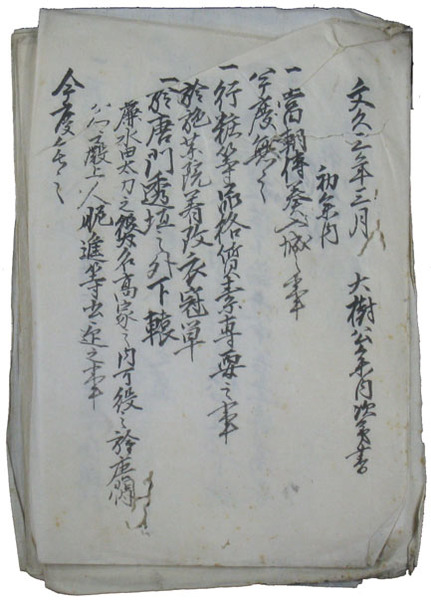 文久三年三月 大樹公参内次第書
初参内
一當朝傳奏入城之事
今度無之
一行粧等品格質素専要之事
於施薬院著改衣冠単
一於唐門透垣之外下轅
太刀之役名高家之内可役之於唐門
公殿上人晩進等出迎之事
今度無之